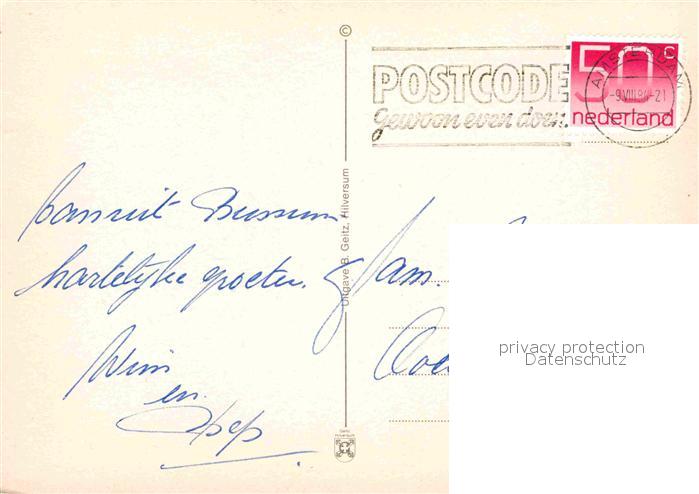 ©
POSTCODE
gewoon even doen.
50 c
nederland
AMSTERDAM
-9.VIII.84-21
Vanuit Bussum
hartelijke groeten.
Wim
en
Uitgave B. Geitz, Hilversum
Fam.
privacy protection
Datenschutz